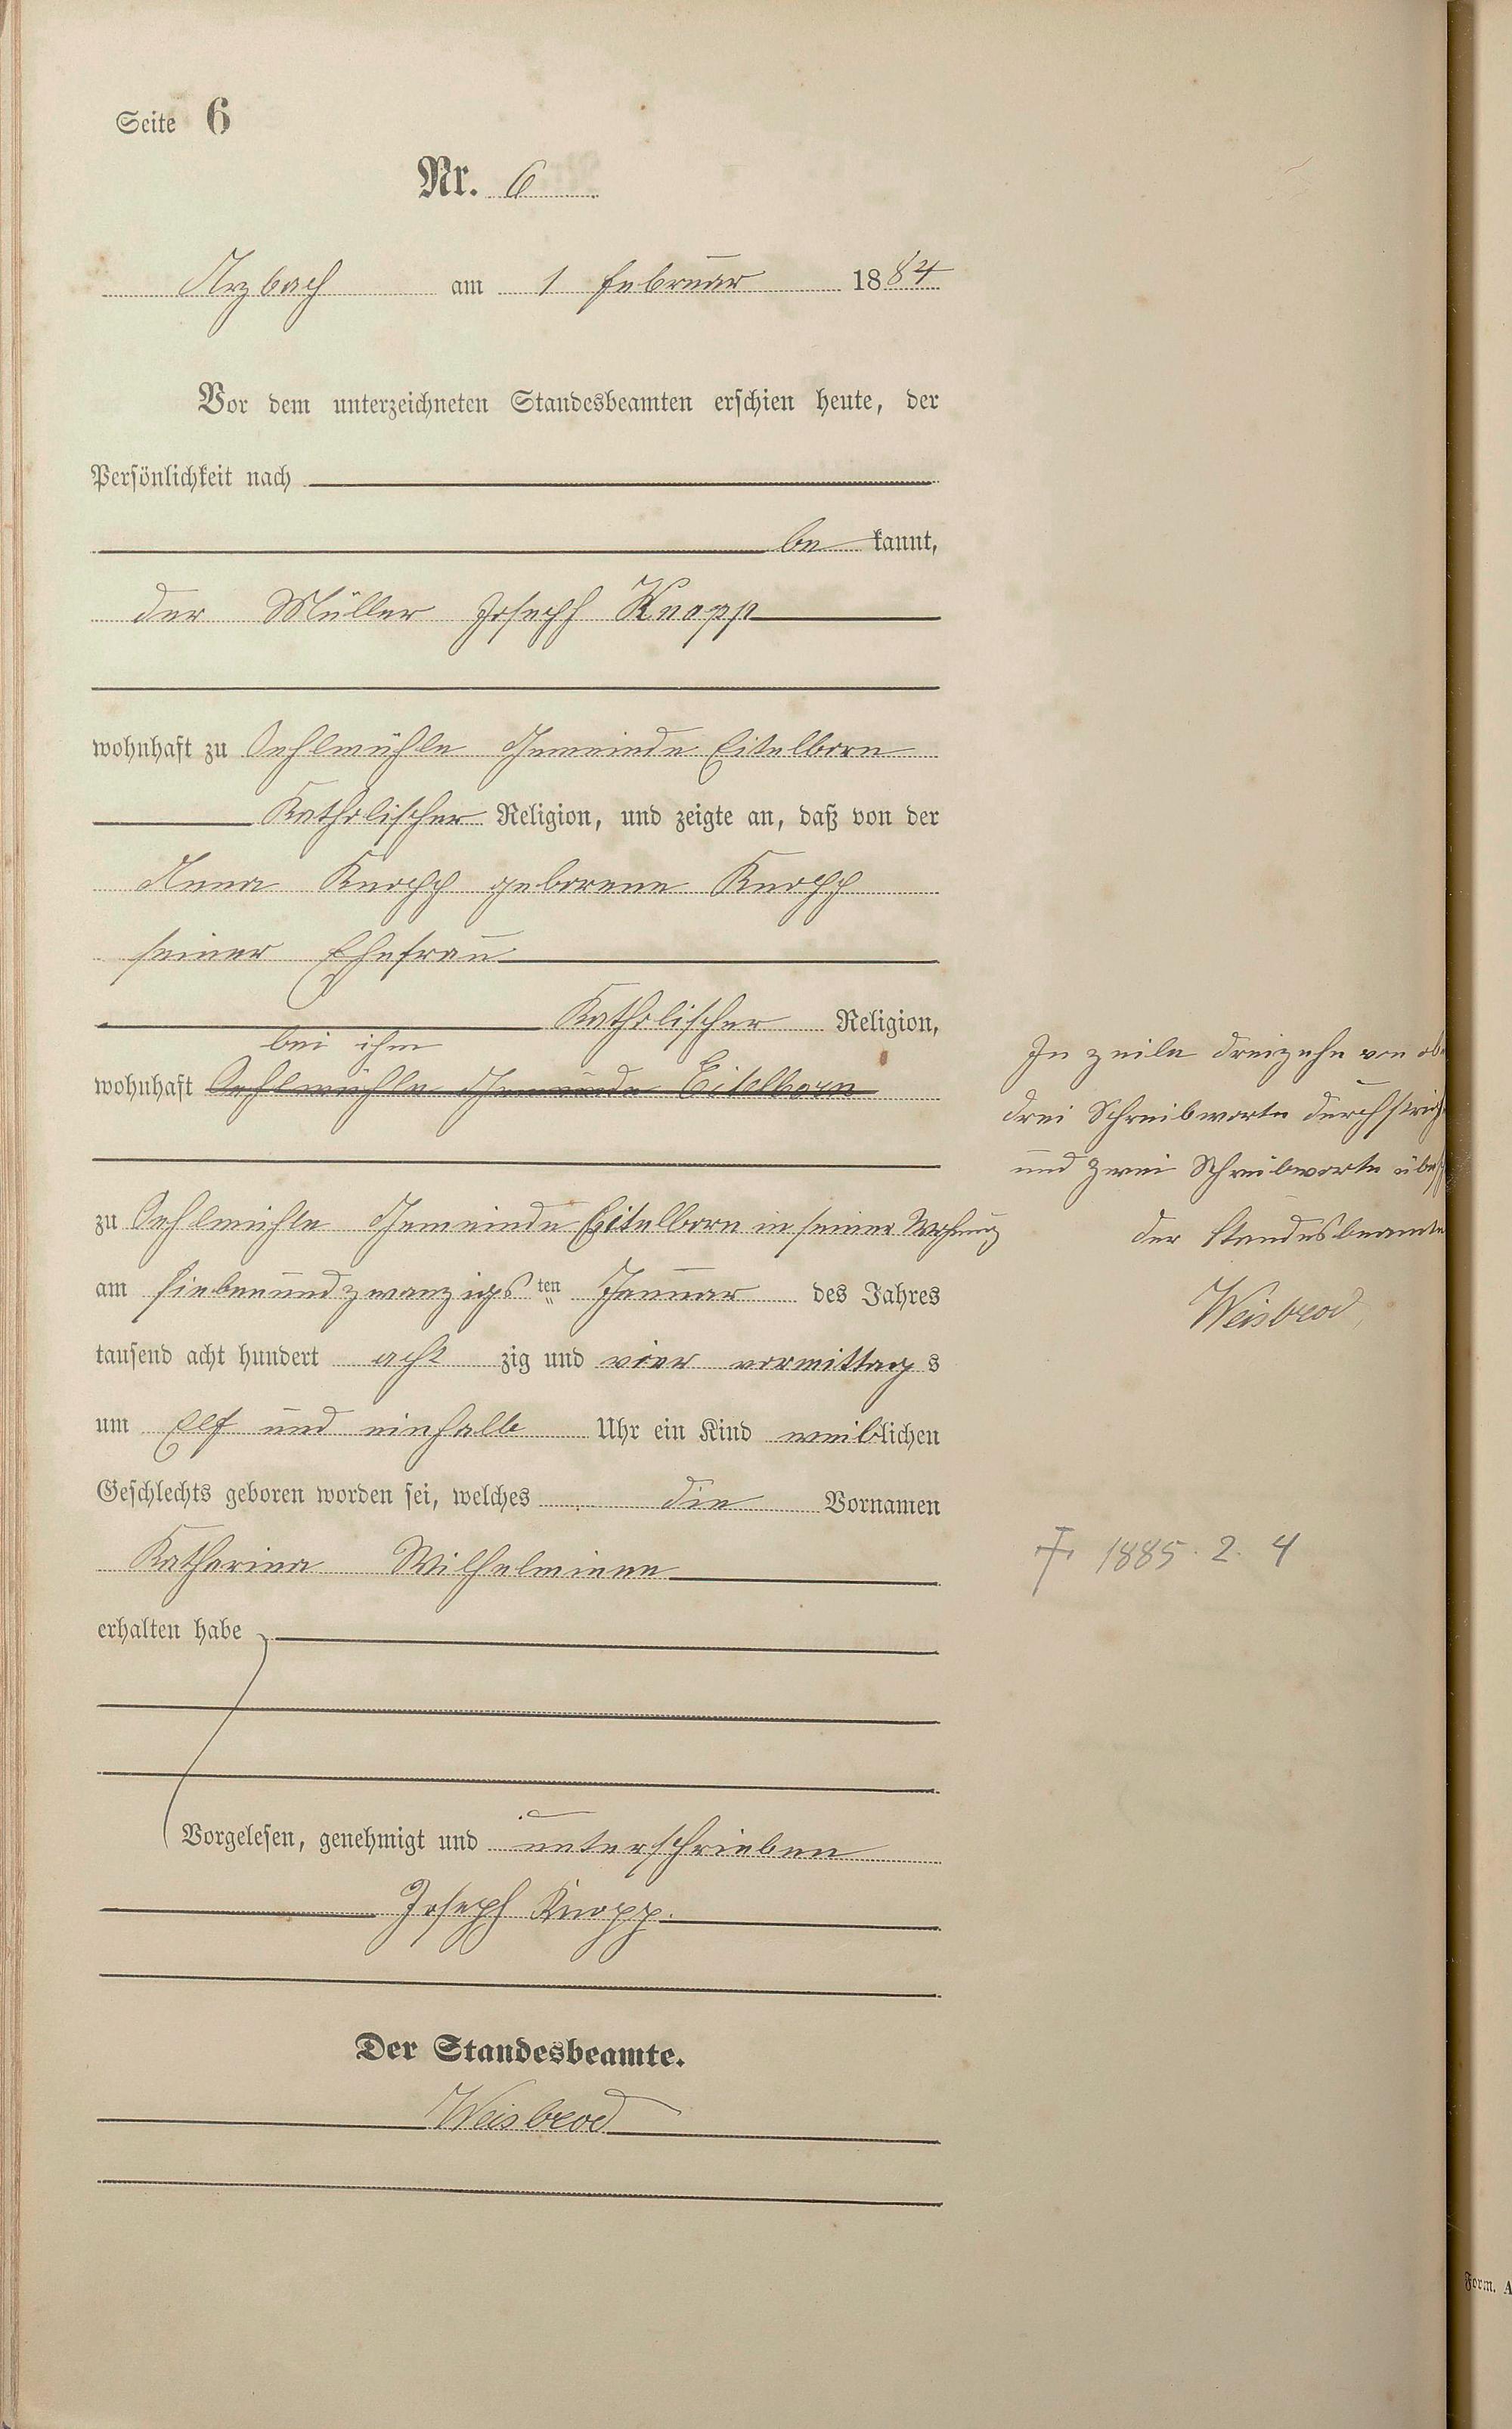 Seite 6
Nr. 6
Arzbach am 1 Februar 1884
Vor dem unterzeichneten Standesbeamten erschien heute, der
Persönlichkeit nach
be kannt,
der Müller Joseph Knopp
wohnhaft zu Oehlmühle Gemeinde Eitelborn
Katholischer Religion, und zeigte an, daß von der
Anna Knopp geborene Knopp
seiner Ehefrau
Katholischer Religion,
bei ihm
wohnhaft Oehlmühle Gemeinde Eitelborn
zu Oehlmühle Gemeinde Eitelborn in seiner Wohnung
am siebenundzwanzigsten Januar des Jahres
tausend acht hundert acht zig und vier vormittags
um Elf und einhalb Uhr ein Kind weiblichen
Geschlechts geboren worden sei, welches die Vornamen
Katharina Wilhelmine
erhalten habe
Vorgelesen, genehmigt und unterschrieben
Joseph Knopp.
Der Standesbeamte.
Weisbrod
In Zeile dreizehn von ob
drei Schreibworte durchstrich
und zwei Schreibworte über
der Standesbeamte
Weisbrod
† 1885. 2. 4
Form. A